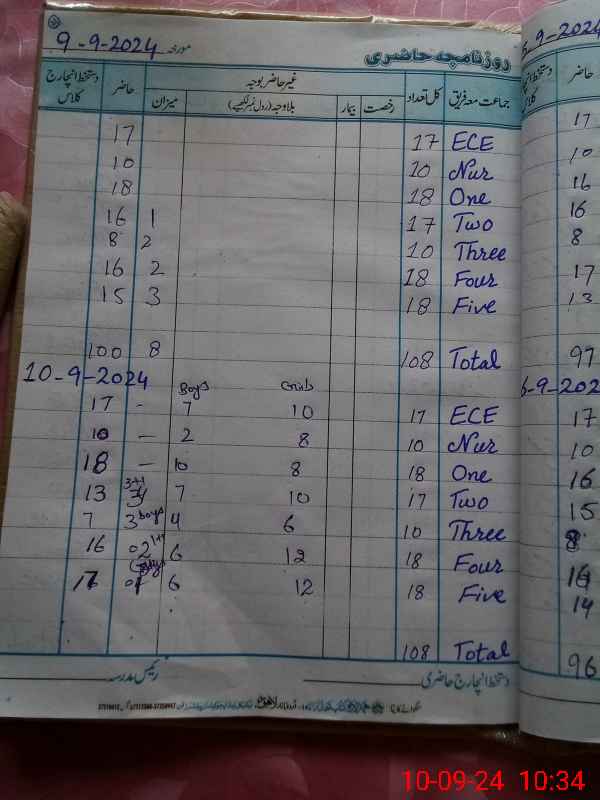 روزنامچہ حاضری مورخہ 9-9-2024
جماعت معہ فریق کل تعداد غیر حاضر بوجہ حاضر دستخط انچارج کلاس
رخصت بیمار بلاوجہ (رول نمبر لکھیے) میزان
17 17 ECE
10 10 Nur
18 18 One
16 1 17 Two
8 2 10 Three
16 2 18 Four
15 3 18 Five
100 8 108 Total
10-9-2024 Boys
17 - 7 10 17 ECE
10 - 2 8 10 Nur
18 - 10 8 18 One
13 3+1 7 10 17 Two
7 3 boys 4 6 10 Three
16 02 6 12 18 Four
17 01 6 12 18 Five
108 Total
دستخط انچارج حاضری رئیس مدرسہ
5-9-2024
حاضر دستخط انچارج کلاس
17
10
16
16
8
17
13
97
6-9-202
17
10
16
15
8
16
14
96
10-09-24 10:34